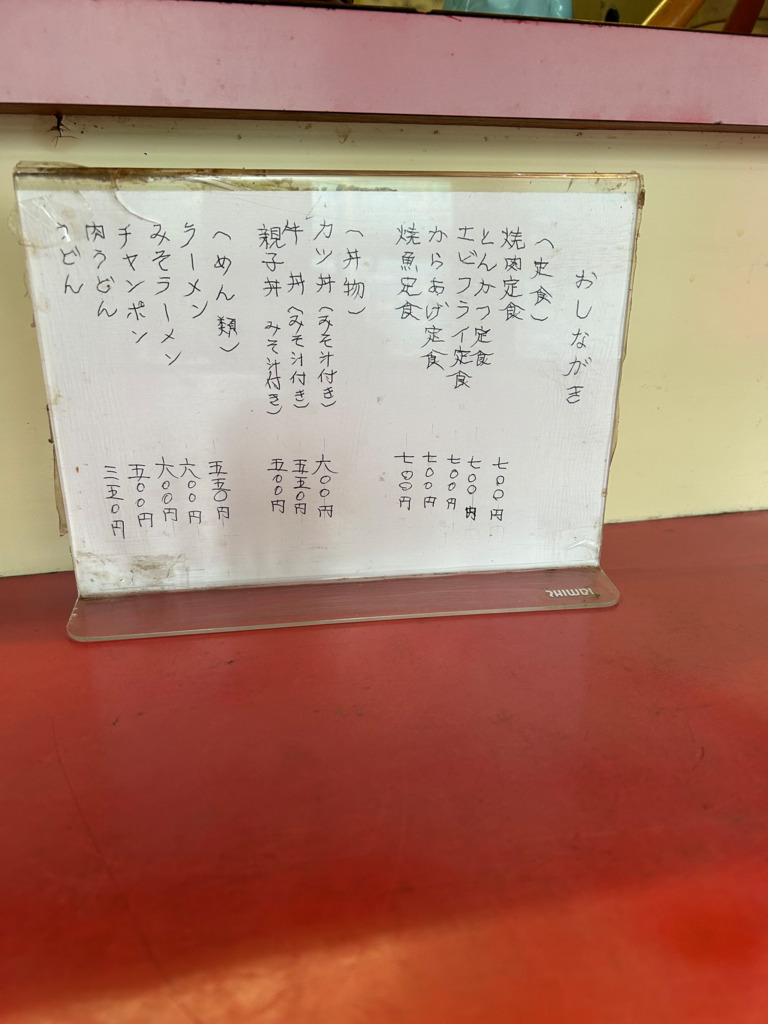 おしながき
(定食)
焼肉定食 七〇〇円
とんかつ定食 七〇〇円
エビフライ定食 七〇〇円
からあげ定食 七〇〇円
焼魚定食 七〇〇円
(丼物)
カツ丼(みそ汁付き) 六〇〇円
牛丼(みそ汁付き) 五五〇円
親子丼 みそ汁付き) 五〇〇円
(めん類)
ラーメン 五五〇円
みそラーメン 六〇〇円
チャンポン 六〇〇円
肉うどん 五〇〇円
うどん 三五〇円